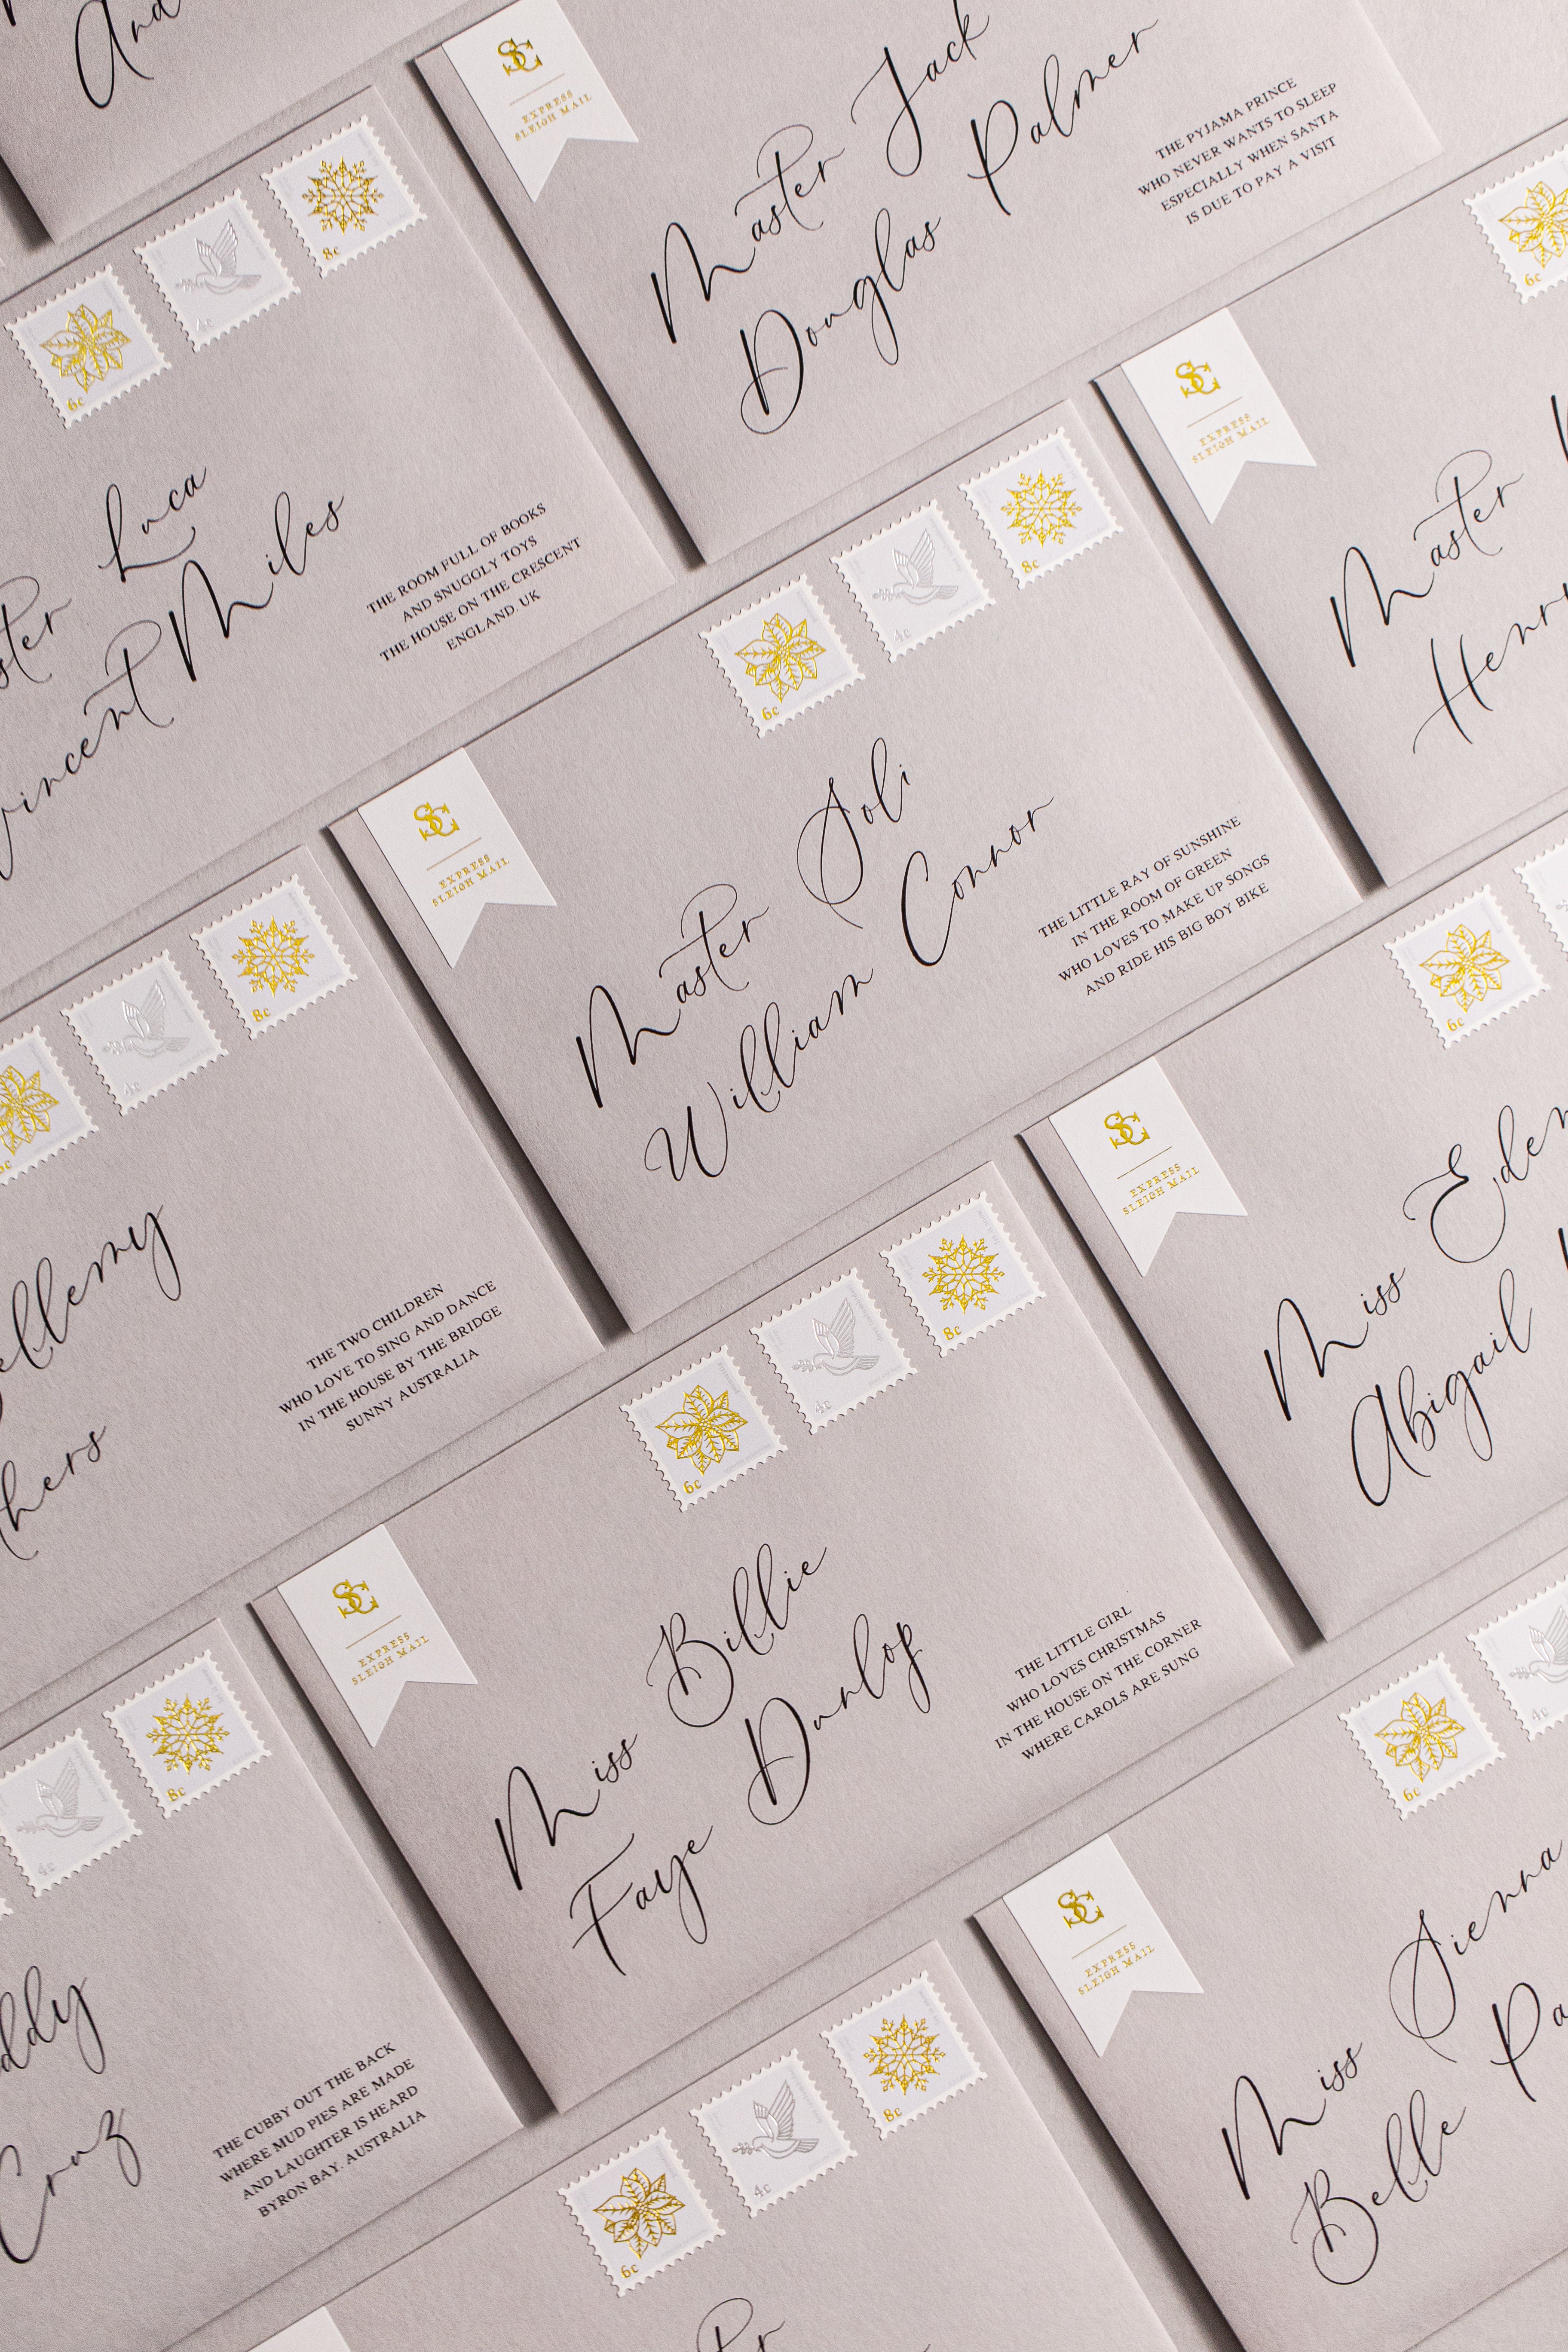 SC
EXPRESS
SLEIGH MAIL
Master Jack
Douglas Palmer
THE PYJAMA PRINCE
WHO NEVER WANTS TO SLEEP
ESPECIALLY WHEN SANTA
IS DUE TO PAY A VISIT
6c
4c
8c
Luca
Vincent Miles
THE ROOM FULL OF BOOKS
AND SNUGGLY TOYS
THE HOUSE ON THE CRESCENT
ENGLAND. UK
6c
SC
EXPRESS
SLEIGH MAIL
Master
Henry
6c
4c
8c
SC
EXPRESS
SLEIGH MAIL
Master Soli
William Connor
THE LITTLE RAY OF SUNSHINE
IN THE ROOM OF GREEN
WHO LOVES TO MAKE UP SONGS
AND RIDE HIS BIG BOY BIKE
6c
4c
8c
THE TWO CHILDREN
WHO LOVE TO SING AND DANCE
IN THE HOUSE BY THE BRIDGE
SUNNY AUSTRALIA
6c
SC
EXPRESS
SLEIGH MAIL
Miss Eden
Abigail
6c
4c
8c
SC
EXPRESS
SLEIGH MAIL
Miss Billie
Faye Dunlop
THE LITTLE GIRL
WHO LOVES CHRISTMAS
IN THE HOUSE ON THE CORNER
WHERE CAROLS ARE SUNG
4c
8c
Cruz
THE CUBBY OUT THE BACK
WHERE MUD PIES ARE MADE
AND LAUGHTER IS HEARD
BYRON BAY. AUSTRALIA
6c
4c
SC
EXPRESS
SLEIGH MAIL
Miss Sienna
Belle Pa
6c
4c
8c